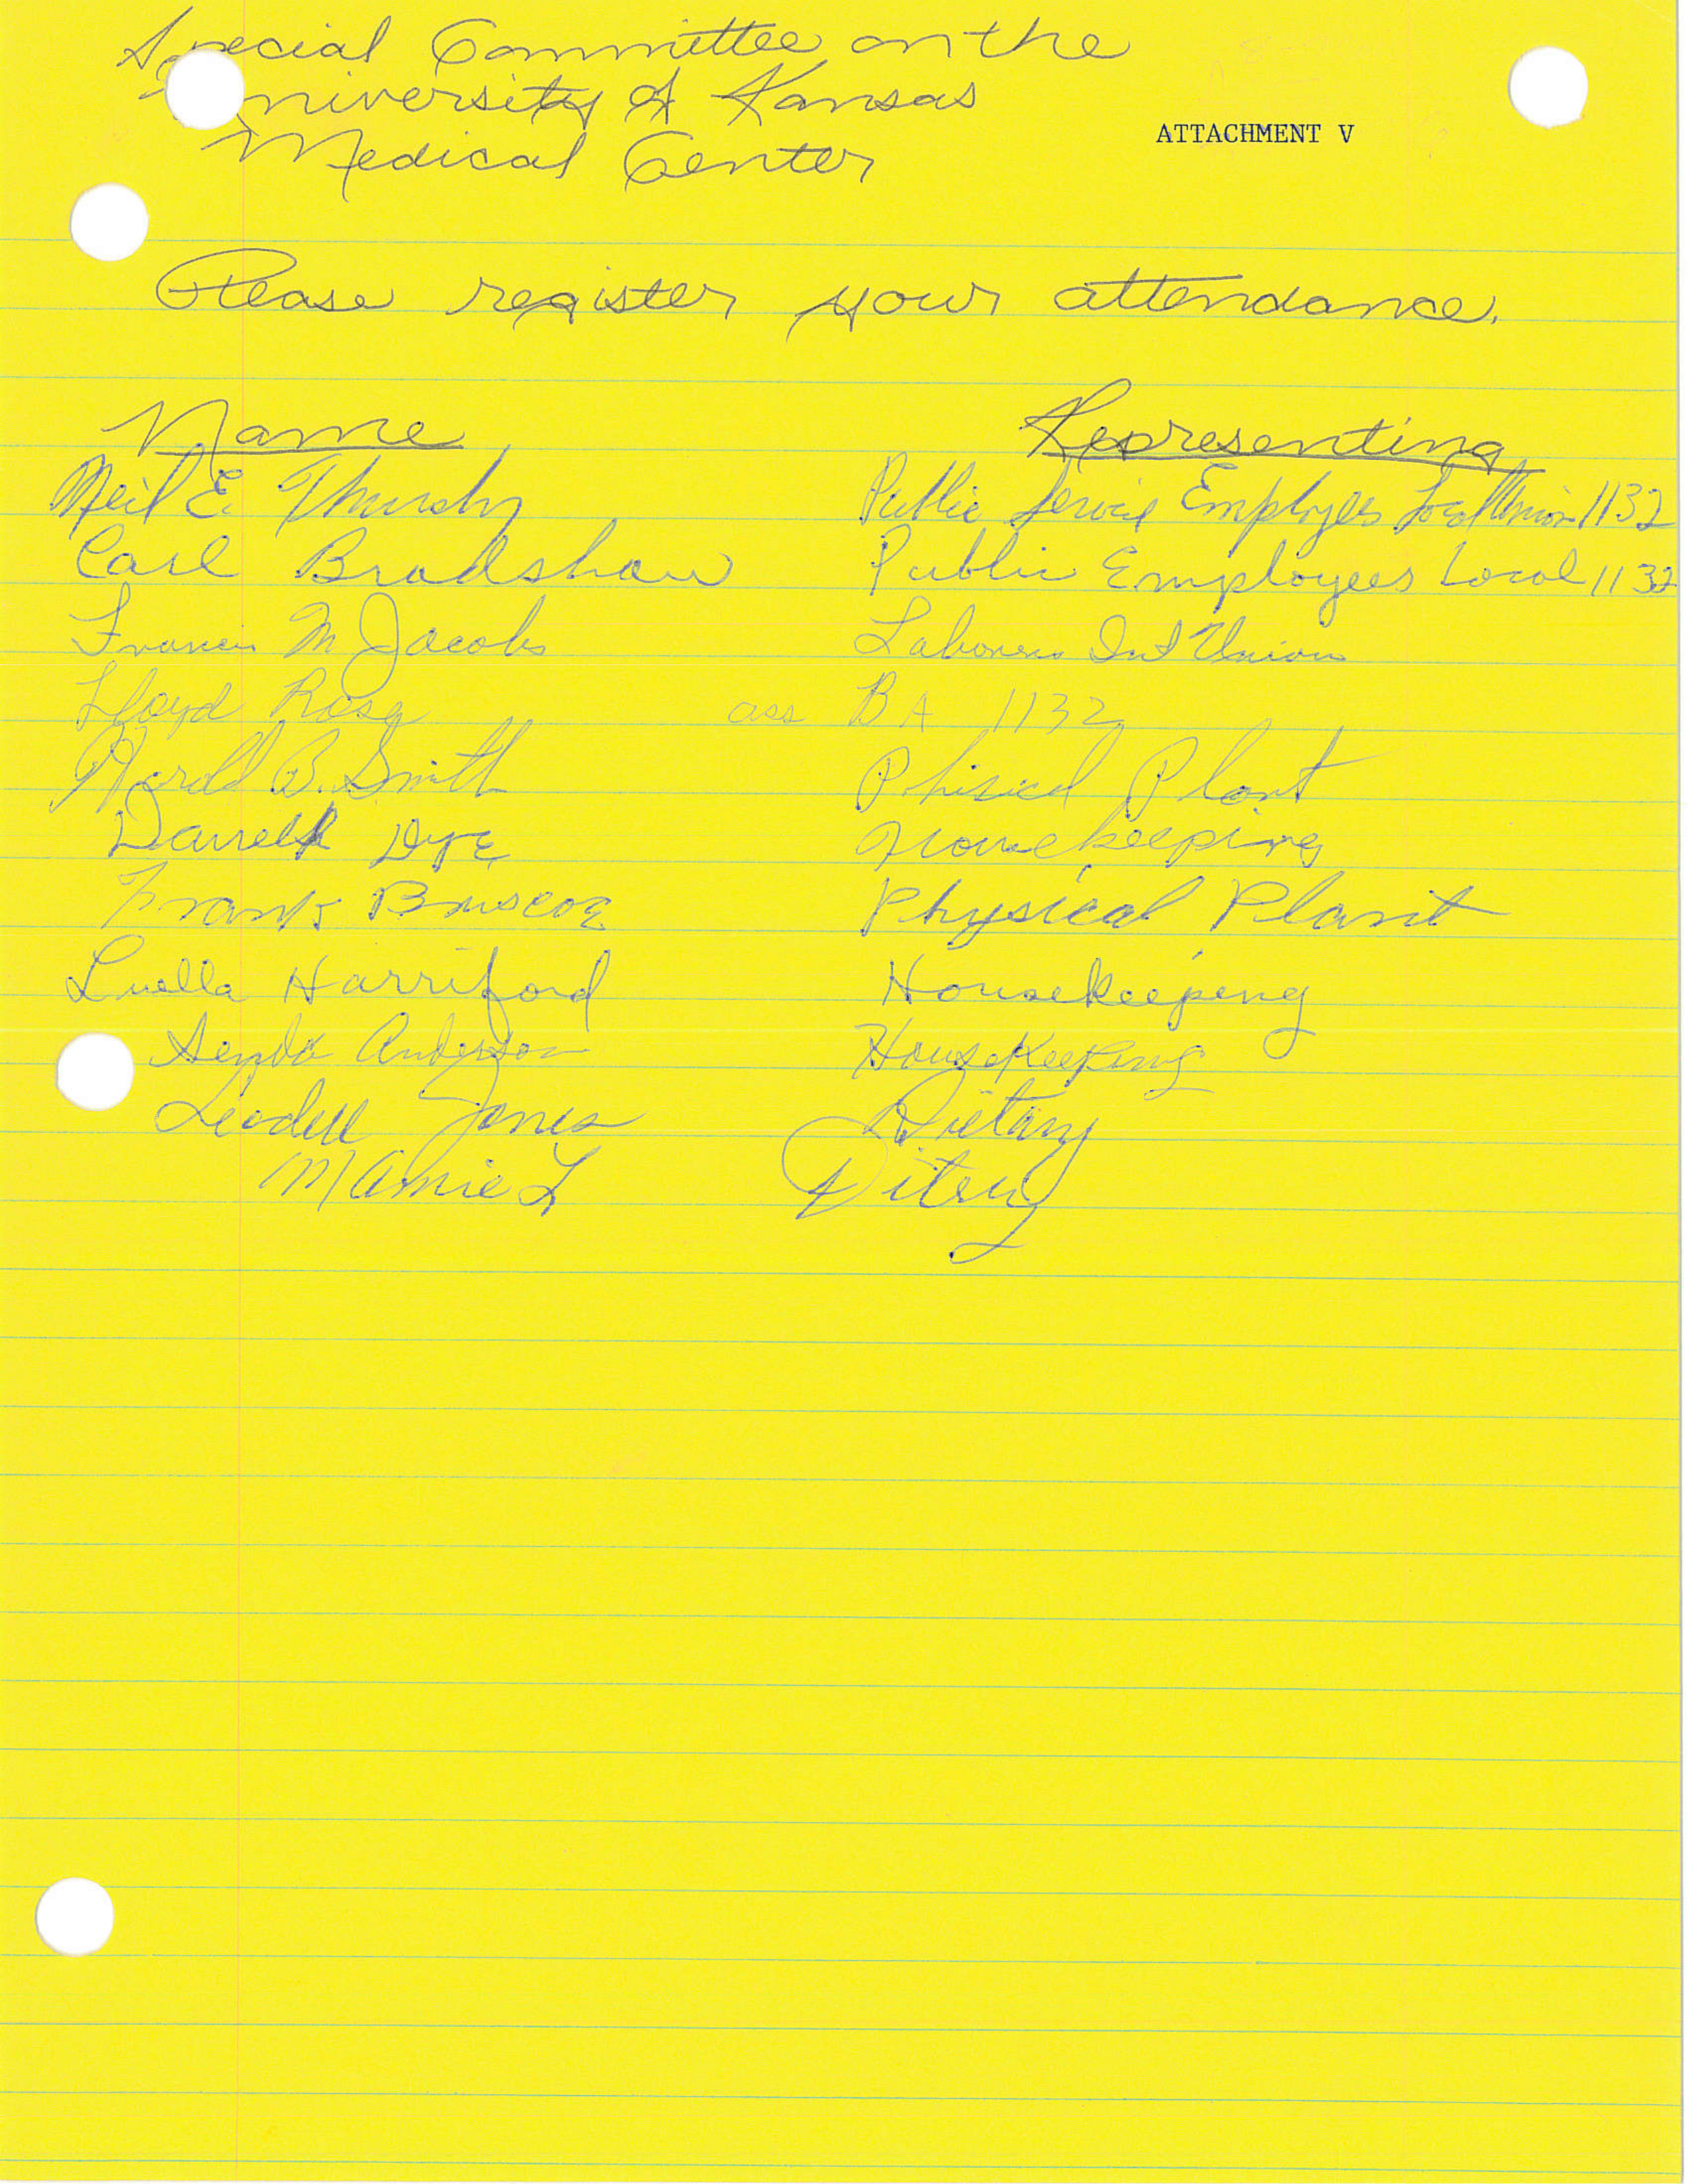 Special Committee on the
University of Kansas
Medical Center
ATTACHMENT V
Please register your attendance.
Name Representing
Neil E. Public Service Employees Local Union 1132
Carl Bradshaw Public Employees Local 1132
Francis M Jacobs Laborers Int Union
Lloyd Rose ass BA 1132
B. Smith Phisical Plant
Darrell Dye Housekeeping
Frank Briscoe Physical Plant
Luella Harriford Housekeepeng
Anderson HouseKeeping
Leodell Jones Dietary
Mamie L